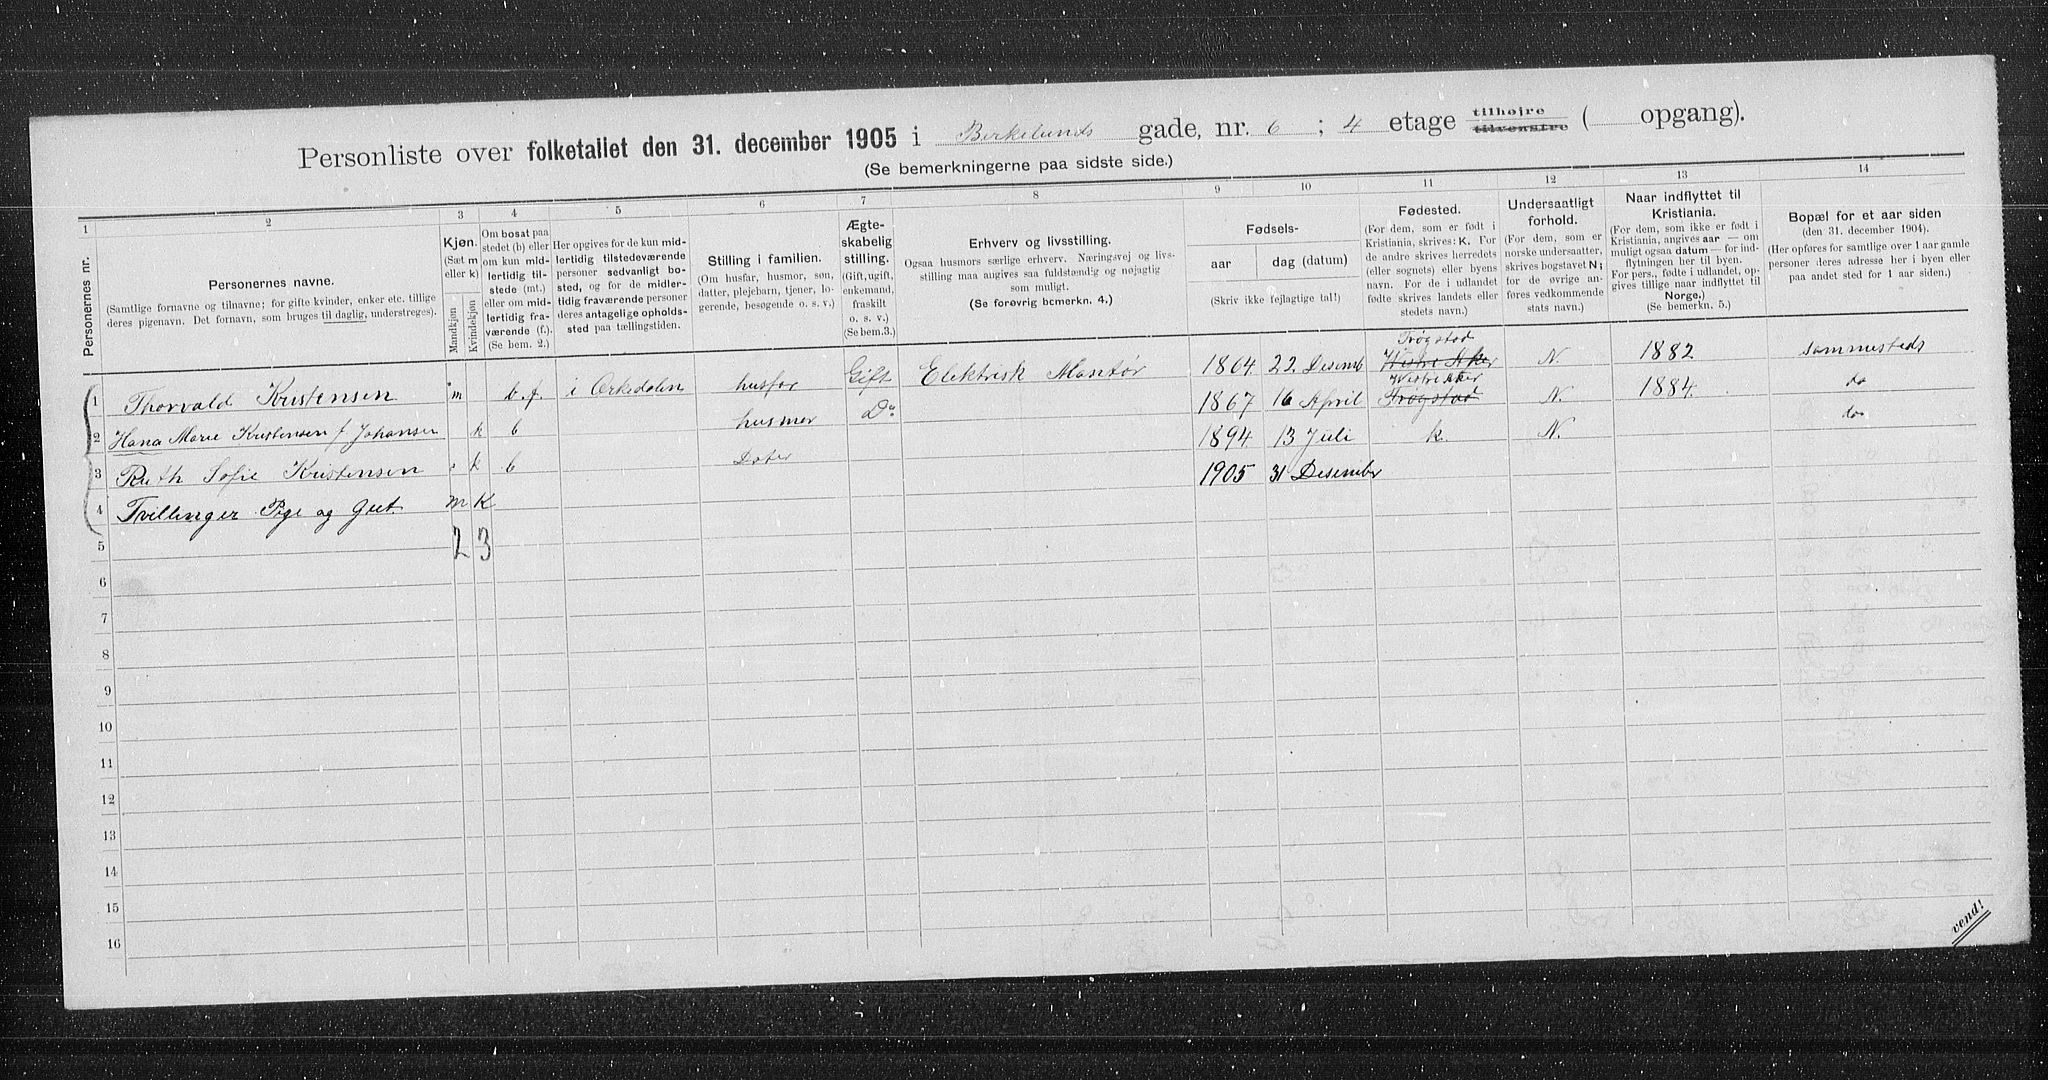 Personliste over folketallet den 31. december 1905 i Birkelunds gade, nr. 6 ; 4 etage tilhøjre tilvenstre ( opgang).
(Se bemerkningerne paa sidste side.)
1 2 3 4 5 6 7 8 9 10 11 12 13 14
Personernes nr.
Personernes navne.
(Samtlige fornavne og tilnavne; for gifte kvinder, enker etc. tillige
deres pigenavn. Det fornavn, som bruges til daglig, understreges).
Kjøn.
(Sæt m
eller k)
Mandkjøn
Kvindekjøn
Om bosat paa
stedet (b) eller
om kun mid-
lertidig til-
stede (mt.)
eller om mid-
lertidig fra-
værende (f.).
(Se bem. 2.)
Her opgives for de kun mid-
lertidig tilstedeværende
personer sedvanlig bo-
sted, og for de midler-
tidig fraværende personer
deres antagelige opholds-
sted paa tællingstiden.
Stilling i familien.
(Om husfar, husmor, søn,
datter, plejebarn, tjener, lo-
gerende, besøgende o. s. v.)
Ægte-
skabelig
stilling.
(Gift, ugift,
enkemand,
fraskilt
o. s. v.)
(Se bem. 3.)
Erhverv og livsstilling.
Ogsaa husmors særlige erhverv. Næringsvej og livs-
stilling maa angives saa fuldstændig og nøjagtig
som muligt.
(Se forøvrig bemerkn. 4.)
Fødsels-
aar dag (datum)
(Skriv ikke fejlagtige tal!)
Fødested.
(For dem, som er født i
Kristiania, skrives: K. For
de andre skrives herredets
(eller sognets) eller byens
navn. For de i udlandet
fødte skrives landets eller
stedets navn.)
Undersaatligt
forhold.
(For dem, som er
norske undersaatter,
skrives bogstavet N;
for de øvrige an-
føres vedkommende
stats navn.)
Naar indflyttet til
Kristiania.
(For dem, som ikke er født i
Kristiania, angives aar — om
muligt ogsaa datum — for ind-
flytningen her til byen.
For pers., fødte i udlandet, op-
gives tillige naar indflyttet til
Norge.)
(Se bemerkn. 5.)
Bopæl for et aar siden
(den 31. december 1904).
(Her opføres for samtlige over 1 aar gamle
personer deres adresse her i byen eller
paa andet sted for 1 aar siden.)
1 Thorvald Kristensen m b. f. i Orkedalen husfar Gift Elektrisk Montør 1864 22 Desemb Trøgstad Vestre Aker N. 1882 sammesteds
2 Hana Marie Kristensen f Johansen k b husmor Do 1867 16 April Vestre Aker Trøgstad N. 1884 do
3 Ruth Sofie Kristensen k b Dater 1894 13 Juli k. N. do
4 Tvillinger Pige og Gut m K 1905 31 Desember
5 2 3
6
7
8
9
10
11
12
13
14
15
16
vend!